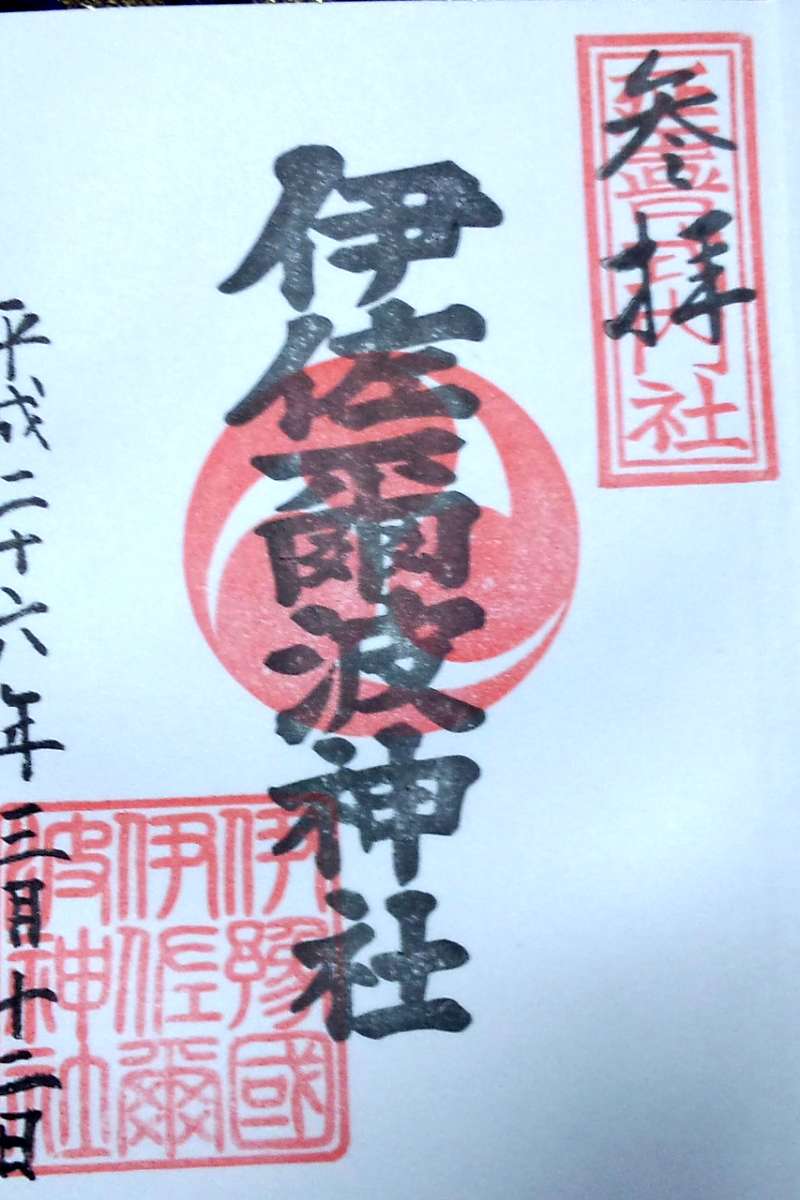 延喜式内社
参拝
伊佐爾波神社
伊豫國
伊佐爾
波神社
平成二十六年三月十二日